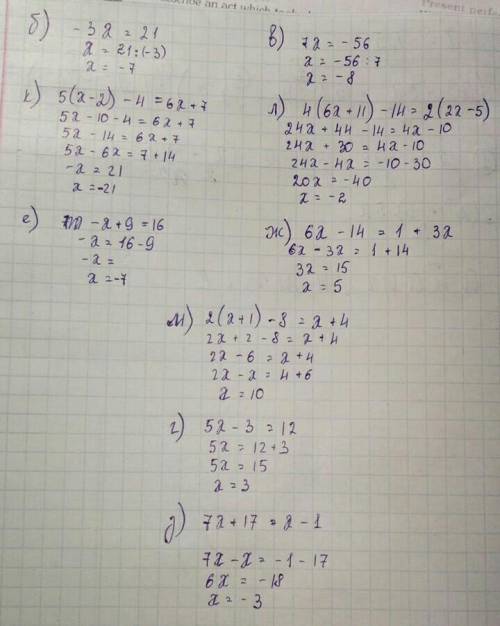 б) -3x = 21
x = 21:(-3)
x = -7
в) 7x = -56
x = -56:7
x = -8
к) 5(x-2) -4 = 6x+7
5x -10 -4 = 6x +7
5x -14 = 6x +7
5x - 6x = 7 +14
-x = 21
x = -21
л) 4(6x+11) -14 = 2(2x-5)
24x + 44 -14 = 4x -10
24x + 30 = 4x -10
24x - 4x = -10 -30
20x = -40
x = -2
е) -x +9 = 16
-x = 16 -9
-x =
x = -7
ж) 6x -14 = 1 + 3x
6x - 3x = 1 +14
3x = 15
x = 5
м) 2(x+1) -8 = x +4
2x +2 -8 = x +4
2x -6 = x +4
2x -x = 4 +6
x = 10
г) 5x - 3 = 12
5x = 12 +3
5x = 15
x = 3
д) 7x +17 = x -1
7x -x = -1 -17
6x = -18
x = -3